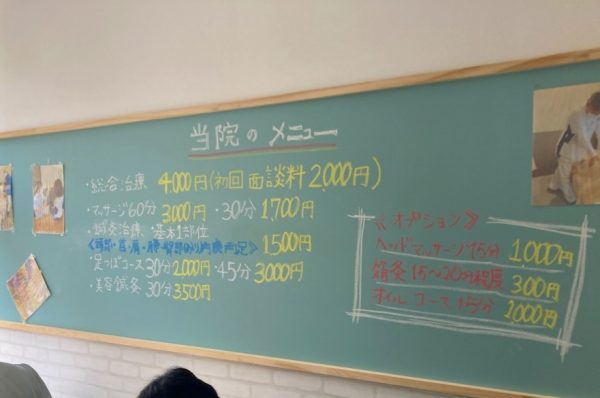 当院のメニュー
・総合治療 4000円(初回面談料2000円)
・マッサージ60分3000円・30分1,700円
・鍼灸治療・基本1部位
《頭部・首・肩・腰・臀部 》1500円
・足つぼコース30分2000円・45分3000円
・美容鍼灸30分3500円
《オプション》
ヘッドマッサージ15分 1000円
鍼灸15〜20分程度 300円
オイルコース15分 1000円